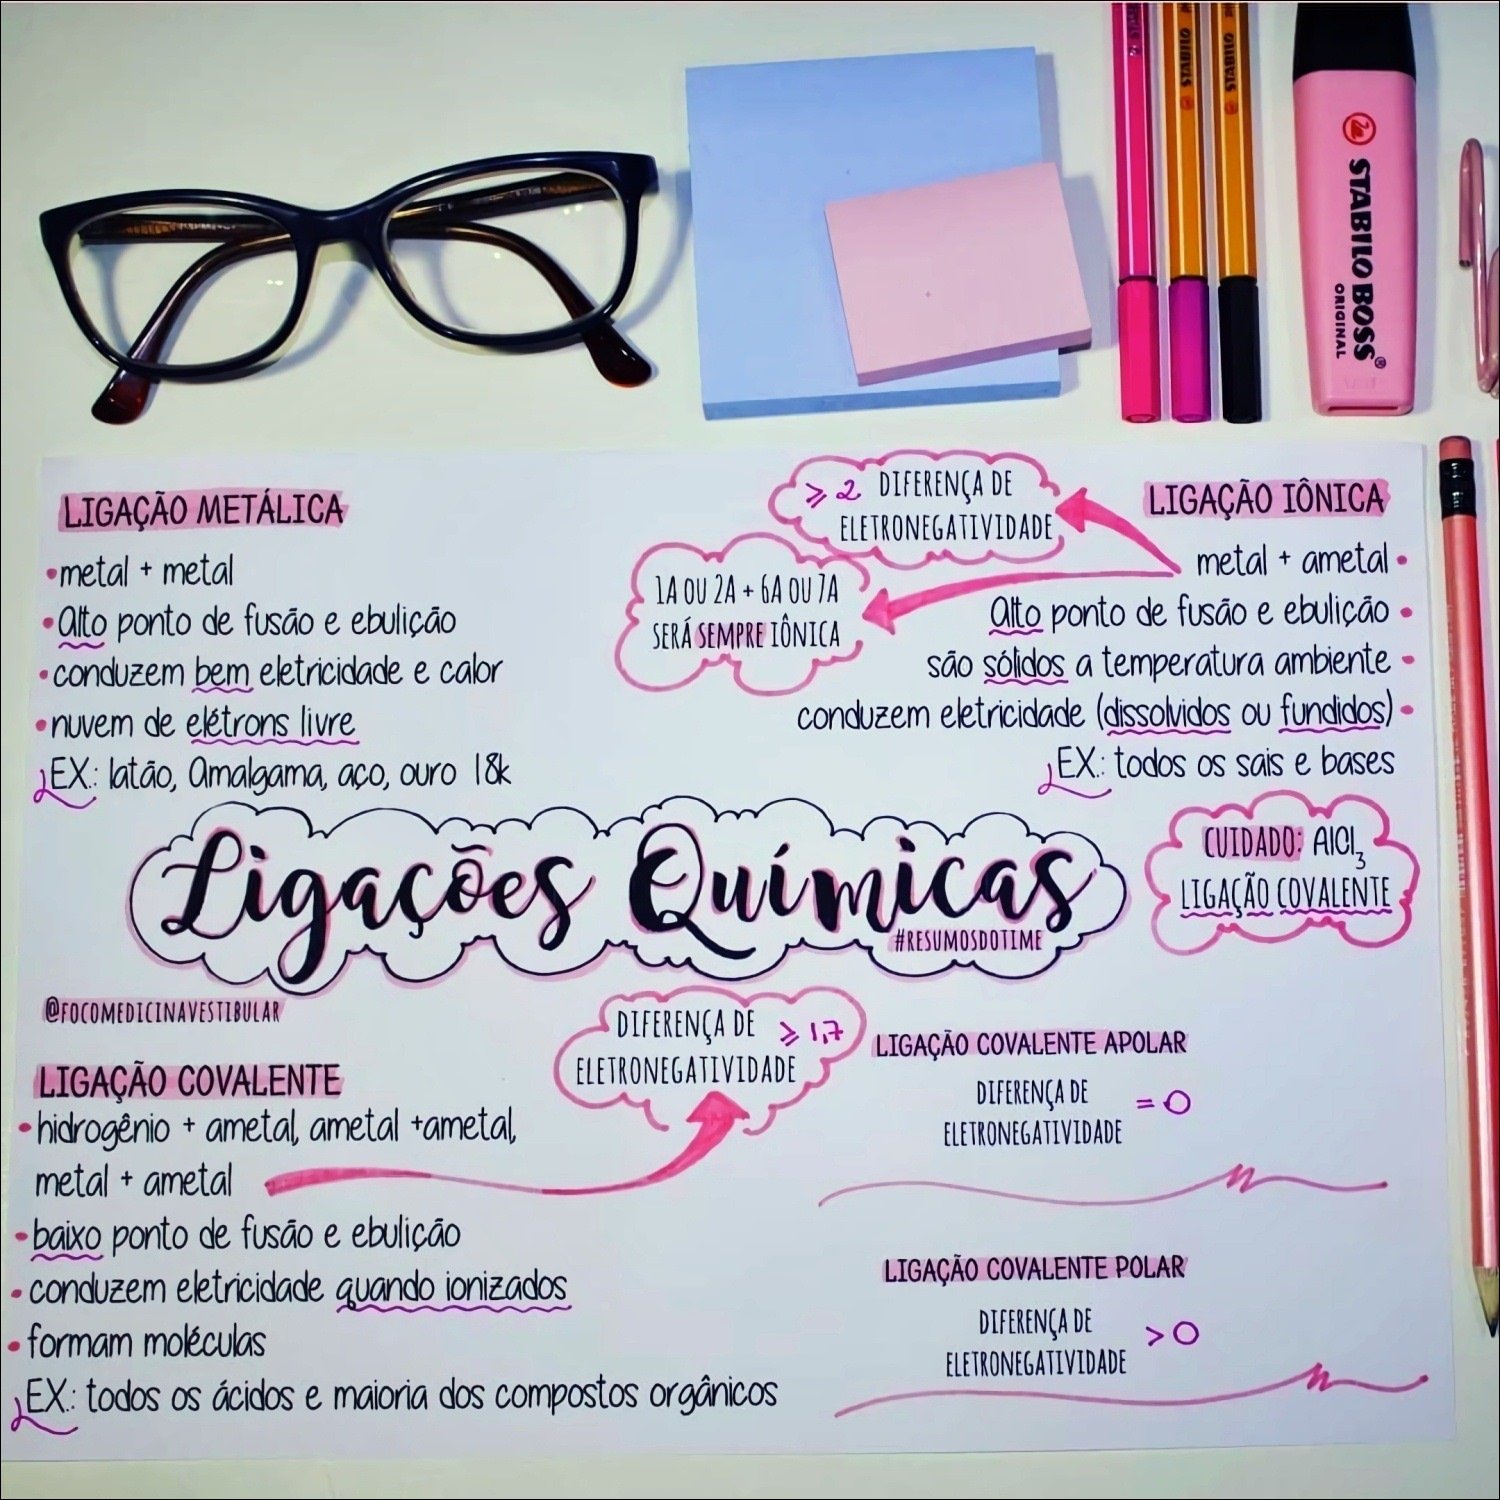 STABILO
STABILO
STABILO BOSS®
ORIGINAL
LIGAÇÃO METÁLICA
•metal + metal
•Alto ponto de fusão e ebulição
•conduzem bem eletricidade e calor
•nuvem de elétrons livre
EX.: latão, Amalgama, aço, ouro 18k
⩾ 2 DIFERENÇA DE
ELETRONEGATIVIDADE
1A OU 2A + 6A OU 7A
SERÁ SEMPRE IÔNICA
LIGAÇÃO IÔNICA
metal + ametal •
Alto ponto de fusão e ebulição •
são sólidos a temperatura ambiente •
conduzem eletricidade (dissolvidos ou fundidos) •
EX.: todos os sais e bases
Ligações Químicas
#RESUMOSDOTIME
CUIDADO: AlCl3
LIGAÇÃO COVALENTE
@FOCOMEDICINAVESTIBULAR
LIGAÇÃO COVALENTE
•hidrogênio + ametal, ametal +ametal,
metal + ametal
•baixo ponto de fusão e ebulição
•conduzem eletricidade quando ionizados
•formam moléculas
EX.: todos os ácidos e maioria dos compostos orgânicos
DIFERENÇA DE ⩾ 1,7
ELETRONEGATIVIDADE
LIGAÇÃO COVALENTE APOLAR
DIFERENÇA DE
ELETRONEGATIVIDADE = 0
LIGAÇÃO COVALENTE POLAR
DIFERENÇA DE
ELETRONEGATIVIDADE > 0